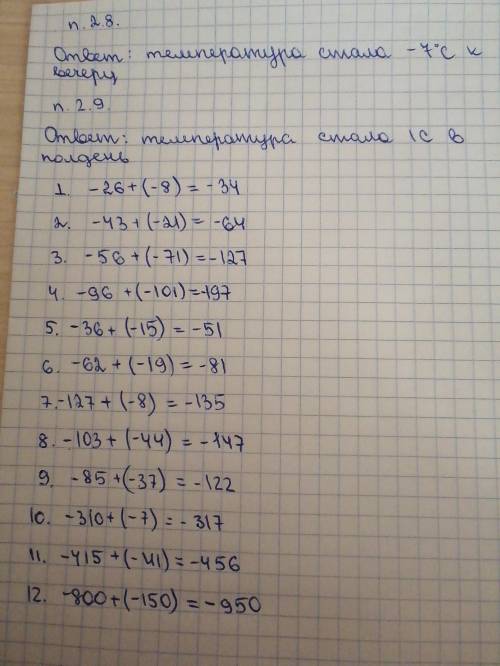 п. 2.8.
Ответ: температура стала -7°С к
вечеру
п. 2.9.
Ответ: температура стала 1С в
полдень
1. -26+(-8) = -34
2. -43+(-21) = -64
3. -56+(-71) =-127
4. -96 +(-101)=-197
5. -36+(-15) = -51
6. -62+(-19) = -81
7.-127+(-8) = -135
8. -103+(-44) = -147
9. -85+(-37) = -122
10. -310+(-7) = -317
11. -415+(-41)=-456
12. -800+(-150) = -950